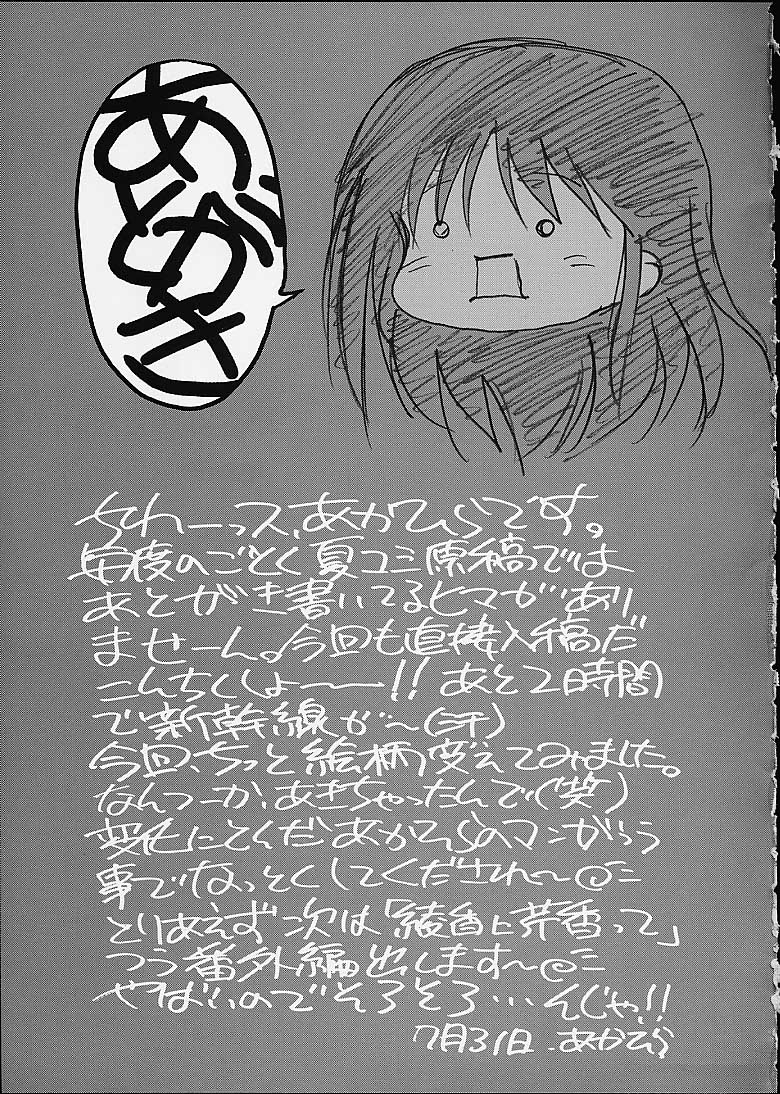 あとがき
ちわーっス、あかひらです。
毎度のごとく夏コミ原稿では
あとがき書いてるヒマがあり
ませーん。今回も直接入稿だ
こんちくしょーーー!! あと2時間
で新幹線が〜(汗)
今回、ちっと絵柄変えてみました。
なんつーか、あきちゃったんで(笑)
変化にとんだあかひらのマンがっつう
事でなっとくしてくだされ〜
とりあえず次は「綾香と芹香って」
つう番外編出します〜
やばいのでそろそろ…んじゃ!!
7月31日.あかひら